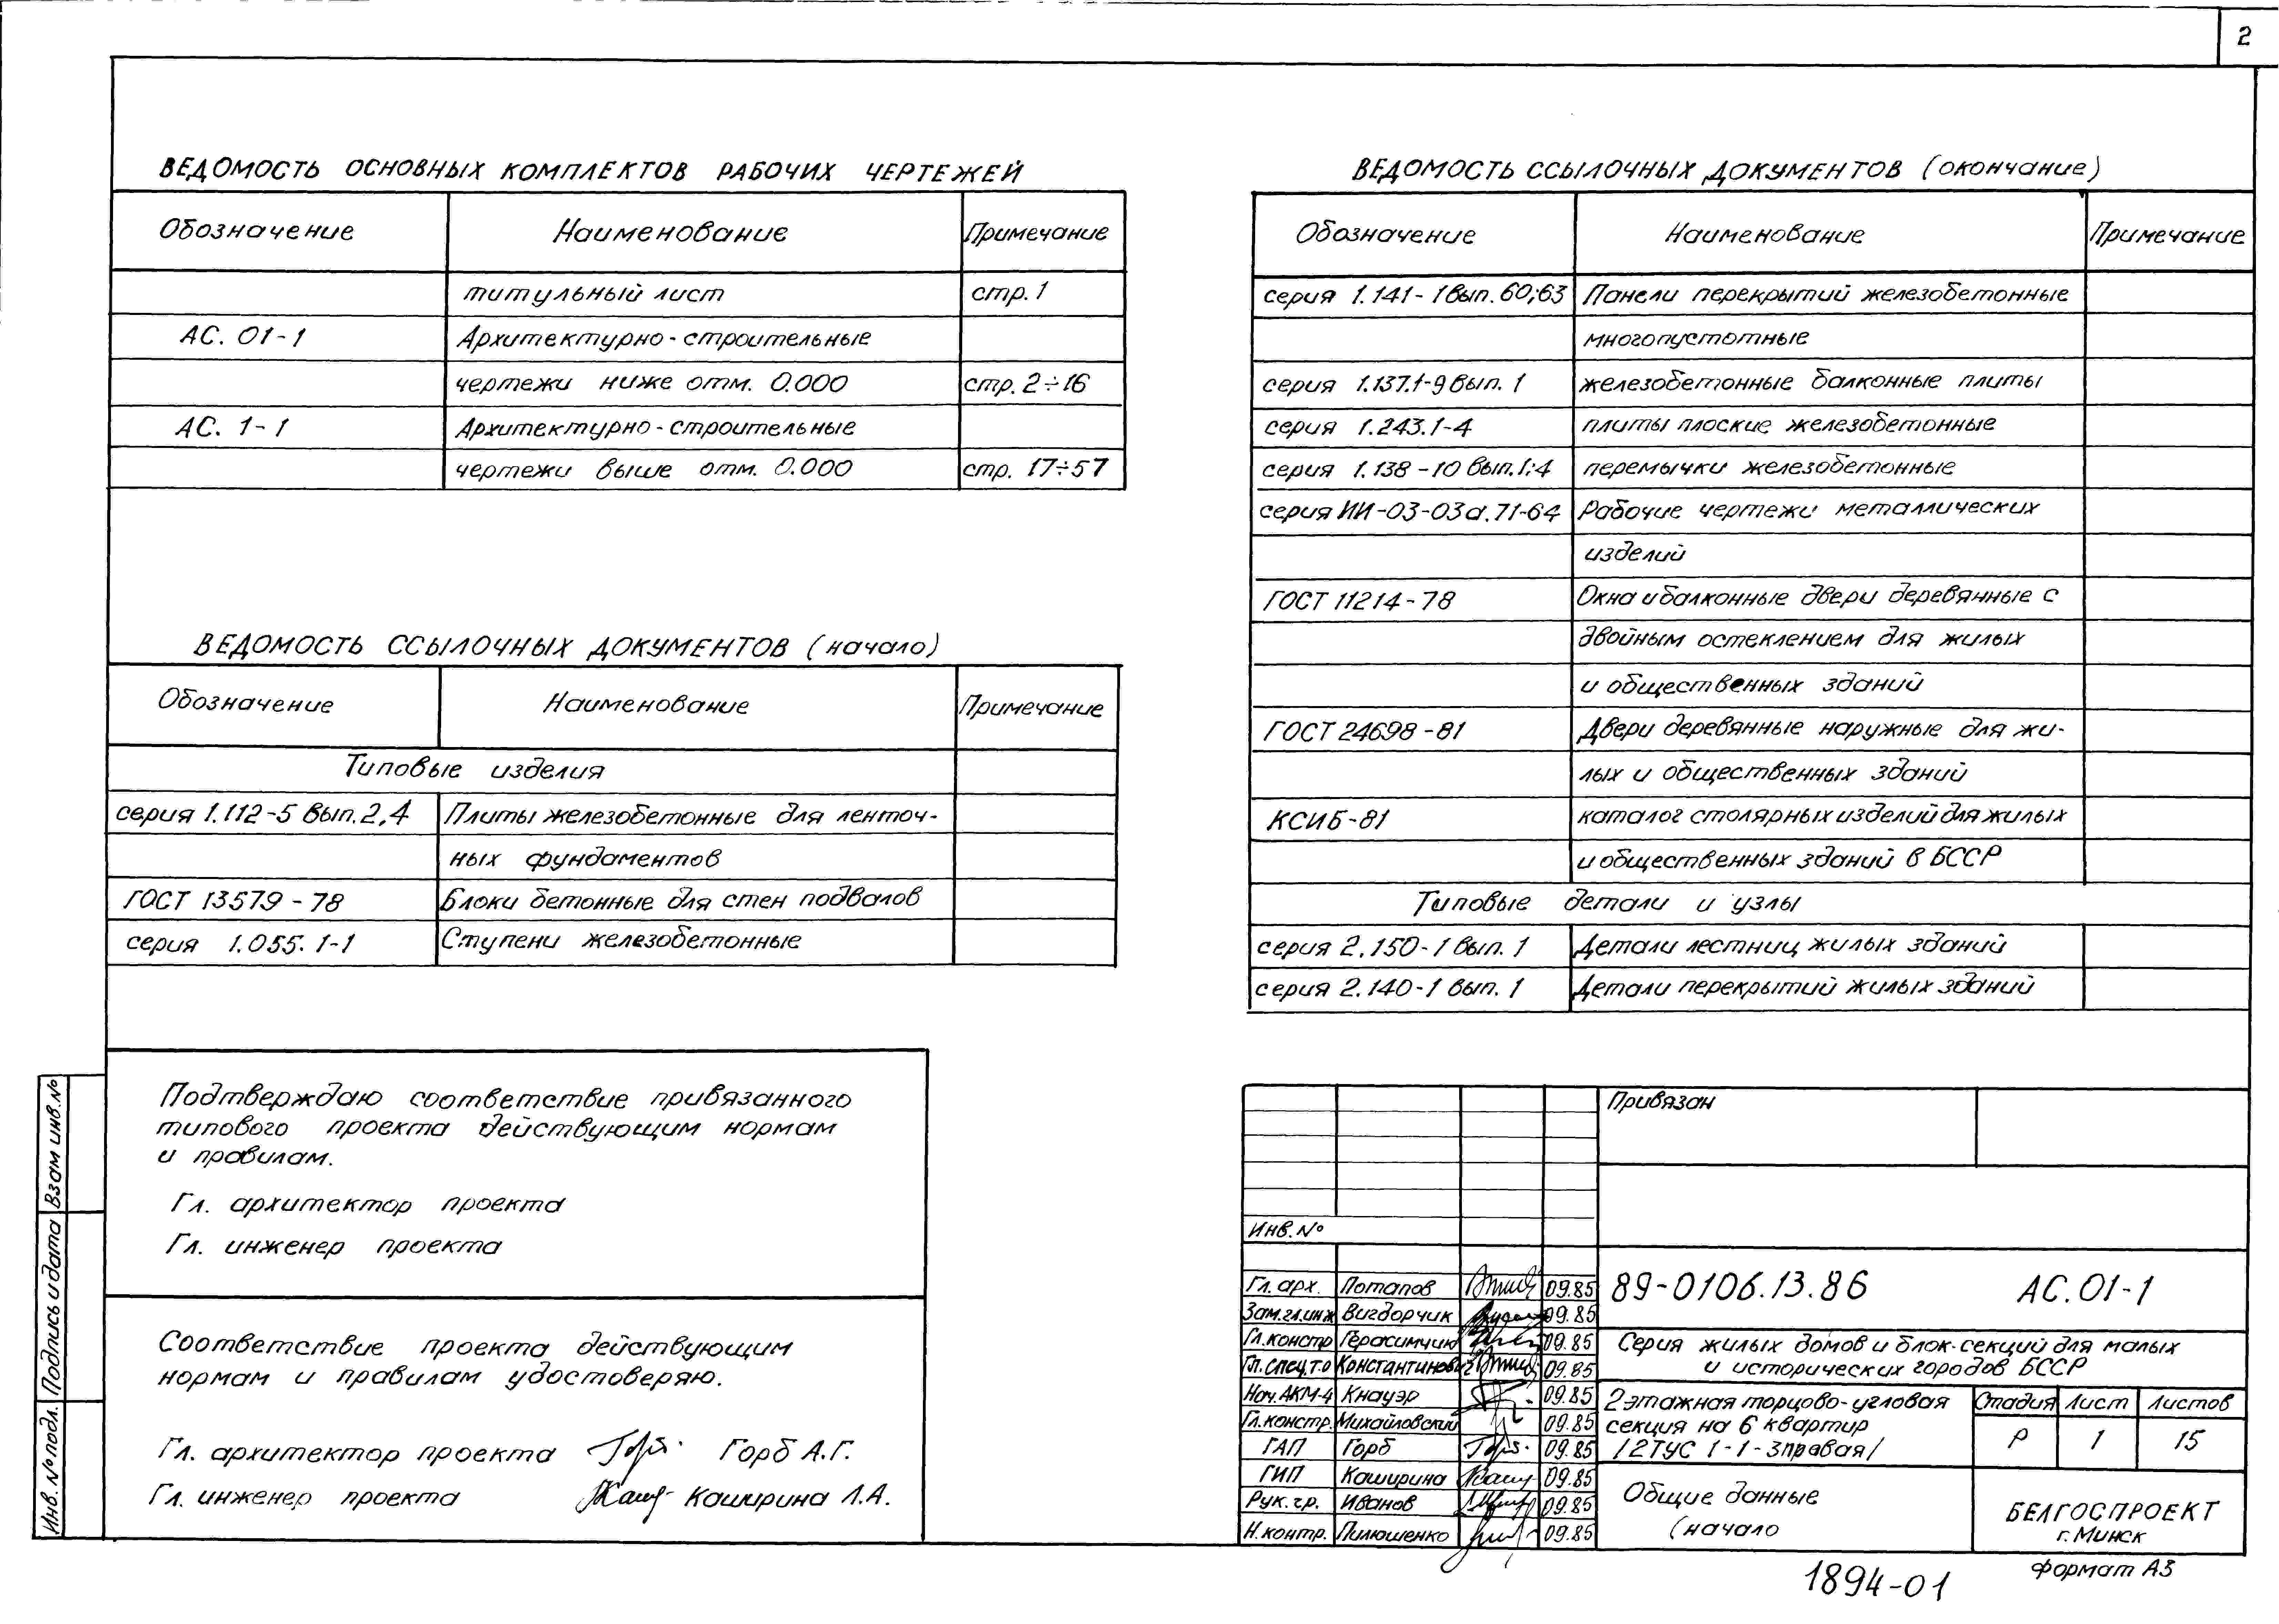 2
ВЕДОМОСТЬ ОСНОВНЫХ КОМПЛЕКТОВ РАБОЧИХ ЧЕРТЕЖЕЙ
Обозначение Наименование Примечание
титульный лист стр. 1
АС. 01-1 Архитектурно-строительные
чертежи ниже отм. 0.000 стр. 2÷16
АС. 1-1 Архитектурно-строительные
чертежи выше отм. 0.000 стр. 17÷57
ВЕДОМОСТЬ ССЫЛОЧНЫХ ДОКУМЕНТОВ (начало)
Обозначение Наименование Примечание
Типовые изделия
серия 1.112-5 вып. 2,4 Плиты железобетонные для ленточ-
ных фундаментов
ГОСТ 13579-78 Блоки бетонные для стен подвалов
серия 1.055.1-1 Ступени железобетонные
ВЕДОМОСТЬ ССЫЛОЧНЫХ ДОКУМЕНТОВ (окончание)
Обозначение Наименование Примечание
серия 1.141-1 вып. 60;63 Панели перекрытий железобетонные
многопустотные
серия 1.137.1-9 вып. 1 железобетонные балконные плиты
серия 1.243.1-4 плиты плоские железобетонные
серия 1.138-10 вып. 1;4 перемычки железобетонные
серия ИИ-03-03а.71-64 Рабочие чертежи металлических
изделий
ГОСТ 11214-78 Окна и балконные двери деревянные с
двойным остеклением для жилых
и общественных зданий
ГОСТ 24698-81 Двери деревянные наружные для жи-
лых и общественных зданий
КСИБ-81 каталог столярных изделий для жилых
и общественных зданий в БССР
Типовые детали и узлы
серия 2.150-1 вып. 1 Детали лестниц жилых зданий
серия 2.140-1 вып. 1 Детали перекрытий жилых зданий
Подтверждаю соответствие привязанного
типового проекта действующим нормам
и правилам.
Гл. архитектор проекта
Гл. инженер проекта
Соответствие проекта действующим
нормам и правилам удостоверяю.
Гл. архитектор проекта Горб А.Г.
Гл. инженер проекта Каширина Л.А.
Взам инв.№
Подпись и дата
Инв.№ подл.
Привязан
Инв.№
Гл. арх. Потапов 09.85
Зам.гл.инж Вигдорчик 09.85
Гл.констр Герасимчик 09.85
Гл.спец.т.о Константинович 09.85
Нач.АКМ-4 Кнауэр 09.85
Гл.констр. Михайловский 09.85
ГАП Горб 09.85
ГИП Каширина 09.85
Рук. гр. Иванов 09.85
Н.контр. Пилюшенко 09.85
89-0106.13.86 АС.01-1
Серия жилых домов и блок-секций для малых
и исторических городов БССР
2 этажная торцово-угловая
секция на 6 квартир
/2ТУС 1-1-3правая/
Стадия Лист Листов
Р 1 15
Общие данные
(начало
БЕЛГОСПРОЕКТ
г. Минск
Формат А3
1894-01